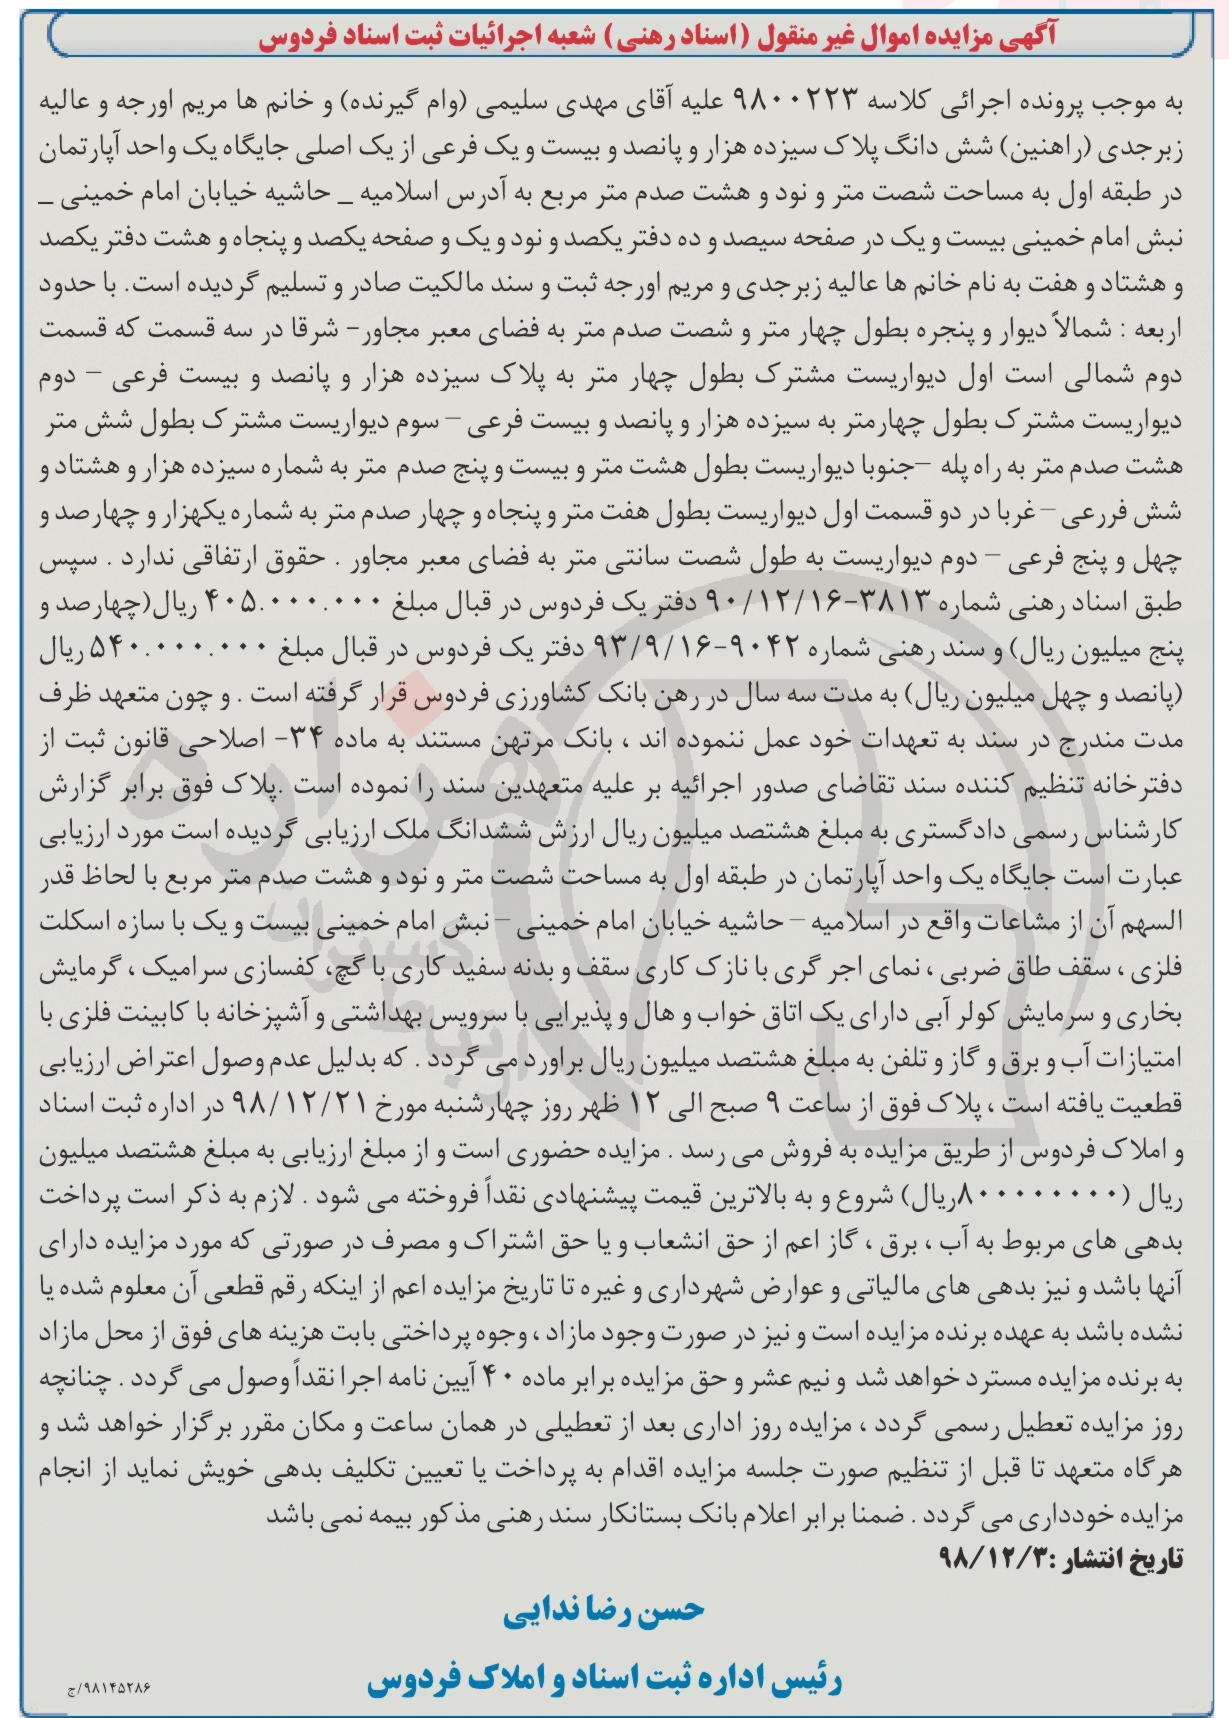 آگهی مزایده اموال غیر منقول (اسناد رهنی) شعبه اجرائیات ثبت اسناد فردوس
به موجب پرونده اجرائی کلاسه ۹۸۰۰۲۲۳ علیه آقای مهدی سلیمی (وام گیرنده) و خانم ها مریم اورجه و عالیه
زبرجدی (راهنین) شش دانگ پلاک سیزده هزار و پانصد و بیست و یک فرعی از یک اصلی جایگاه یک واحد آپارتمان
در طبقه اول به مساحت شصت متر و نود و هشت صدم متر مربع به آدرس اسلامیه _ حاشیه خیابان امام خمینی _
نبش امام خمینی بیست و یک در صفحه سیصد و ده دفتر یکصد و نود و یک و صفحه یکصد و پنجاه و هشت دفتر یکصد
و هشتاد و هفت به نام خانم ها عالیه زبرجدی و مریم اورجه ثبت و سند مالکیت صادر و تسلیم گردیده است. با حدود
اربعه : شمالاً دیوار و پنجره بطول چهار متر و شصت صدم متر به فضای معبر مجاور- شرقا در سه قسمت که قسمت
دوم شمالی است اول دیواریست مشترک بطول چهار متر به پلاک سیزده هزار و پانصد و بیست فرعی – دوم
دیواریست مشترک بطول چهارمتر به سیزده هزار و پانصد و بیست فرعی – سوم دیواریست مشترک بطول شش متر
هشت صدم متر به راه پله –جنوبا دیواریست بطول هشت متر و بیست و پنج صدم متر به شماره سیزده هزار و هشتاد و
شش فررعی – غربا در دو قسمت اول دیواریست بطول هفت متر و پنجاه و چهار صدم متر به شماره یکهزار و چهارصد و
چهل و پنج فرعی – دوم دیواریست به طول شصت سانتی متر به فضای معبر مجاور . حقوق ارتفاقی ندارد . سپس
طبق اسناد رهنی شماره ۳۸۱۳-۹۰/۱۲/۱۶ دفتر یک فردوس در قبال مبلغ ۴۰۵.۰۰۰.۰۰۰ ریال(چهارصد و
پنج میلیون ریال) و سند رهنی شماره ۹۰۴۲-۹۳/۹/۱۶ دفتر یک فردوس در قبال مبلغ ۵۴۰.۰۰۰.۰۰۰ ریال
(پانصد و چهل میلیون ریال) به مدت سه سال در رهن بانک کشاورزی فردوس قرار گرفته است . و چون متعهد ظرف
مدت مندرج در سند به تعهدات خود عمل ننموده اند ، بانک مرتهن مستند به ماده ۳۴- اصلاحی قانون ثبت از
دفترخانه تنظیم کننده سند تقاضای صدور اجرائیه بر علیه متعهدین سند را نموده است .پلاک فوق برابر گزارش
کارشناس رسمی دادگستری به مبلغ هشتصد میلیون ریال ارزش ششدانگ ملک ارزیابی گردیده است مورد ارزیابی
عبارت است جایگاه یک واحد آپارتمان در طبقه اول به مساحت شصت متر و نود و هشت صدم متر مربع با لحاظ قدر
السهم آن از مشاعات واقع در اسلامیه – حاشیه خیابان امام خمینی – نبش امام خمینی بیست و یک با سازه اسکلت
فلزی ، سقف طاق ضربی ، نمای اجر گری با نازک کاری سقف و بدنه سفید کاری با گچ، کفسازی سرامیک ، گرمایش
بخاری و سرمایش کولر آبی دارای یک اتاق خواب و هال و پذیرایی با سرویس بهداشتی و آشپزخانه با کابینت فلزی با
امتیازات آب و برق و گاز و تلفن به مبلغ هشتصد میلیون ریال براورد می گردد . که بدلیل عدم وصول اعتراض ارزیابی
قطعیت یافته است ، پلاک فوق از ساعت ۹ صبح الی ۱۲ ظهر روز چهارشنبه مورخ ۹۸/۱۲/۲۱ در اداره ثبت اسناد
و املاک فردوس از طریق مزایده به فروش می رسد . مزایده حضوری است و از مبلغ ارزیابی به مبلغ هشتصد میلیون
ریال (۸۰۰۰۰۰۰۰۰ریال) شروع و به بالاترین قیمت پیشنهادی نقداً فروخته می شود . لازم به ذکر است پرداخت
بدهی های مربوط به آب ، برق ، گاز اعم از حق انشعاب و یا حق اشتراک و مصرف در صورتی که مورد مزایده دارای
آنها باشد و نیز بدهی های مالیاتی و عوارض شهرداری و غیره تا تاریخ مزایده اعم از اینکه رقم قطعی آن معلوم شده یا
نشده باشد به عهده برنده مزایده است و نیز در صورت وجود مازاد ، وجوه پرداختی بابت هزینه های فوق از محل مازاد
به برنده مزایده مسترد خواهد شد و نیم عشر و حق مزایده برابر ماده ۴۰ آیین نامه اجرا نقداً وصول می گردد . چنانچه
روز مزایده تعطیل رسمی گردد ، مزایده روز اداری بعد از تعطیلی در همان ساعت و مکان مقرر برگزار خواهد شد و
هرگاه متعهد تا قبل از تنظیم صورت جلسه مزایده اقدام به پرداخت یا تعیین تکلیف بدهی خویش نماید از انجام
مزایده خودداری می گردد . ضمنا برابر اعلام بانک بستانکار سند رهنی مذکور بیمه نمی باشد
تاریخ انتشار :۹۸/۱۲/۳
حسن رضا ندایی
رئیس اداره ثبت اسناد و املاک فردوس
۹۸۱۴۵۲۸۶/ج
هزاره